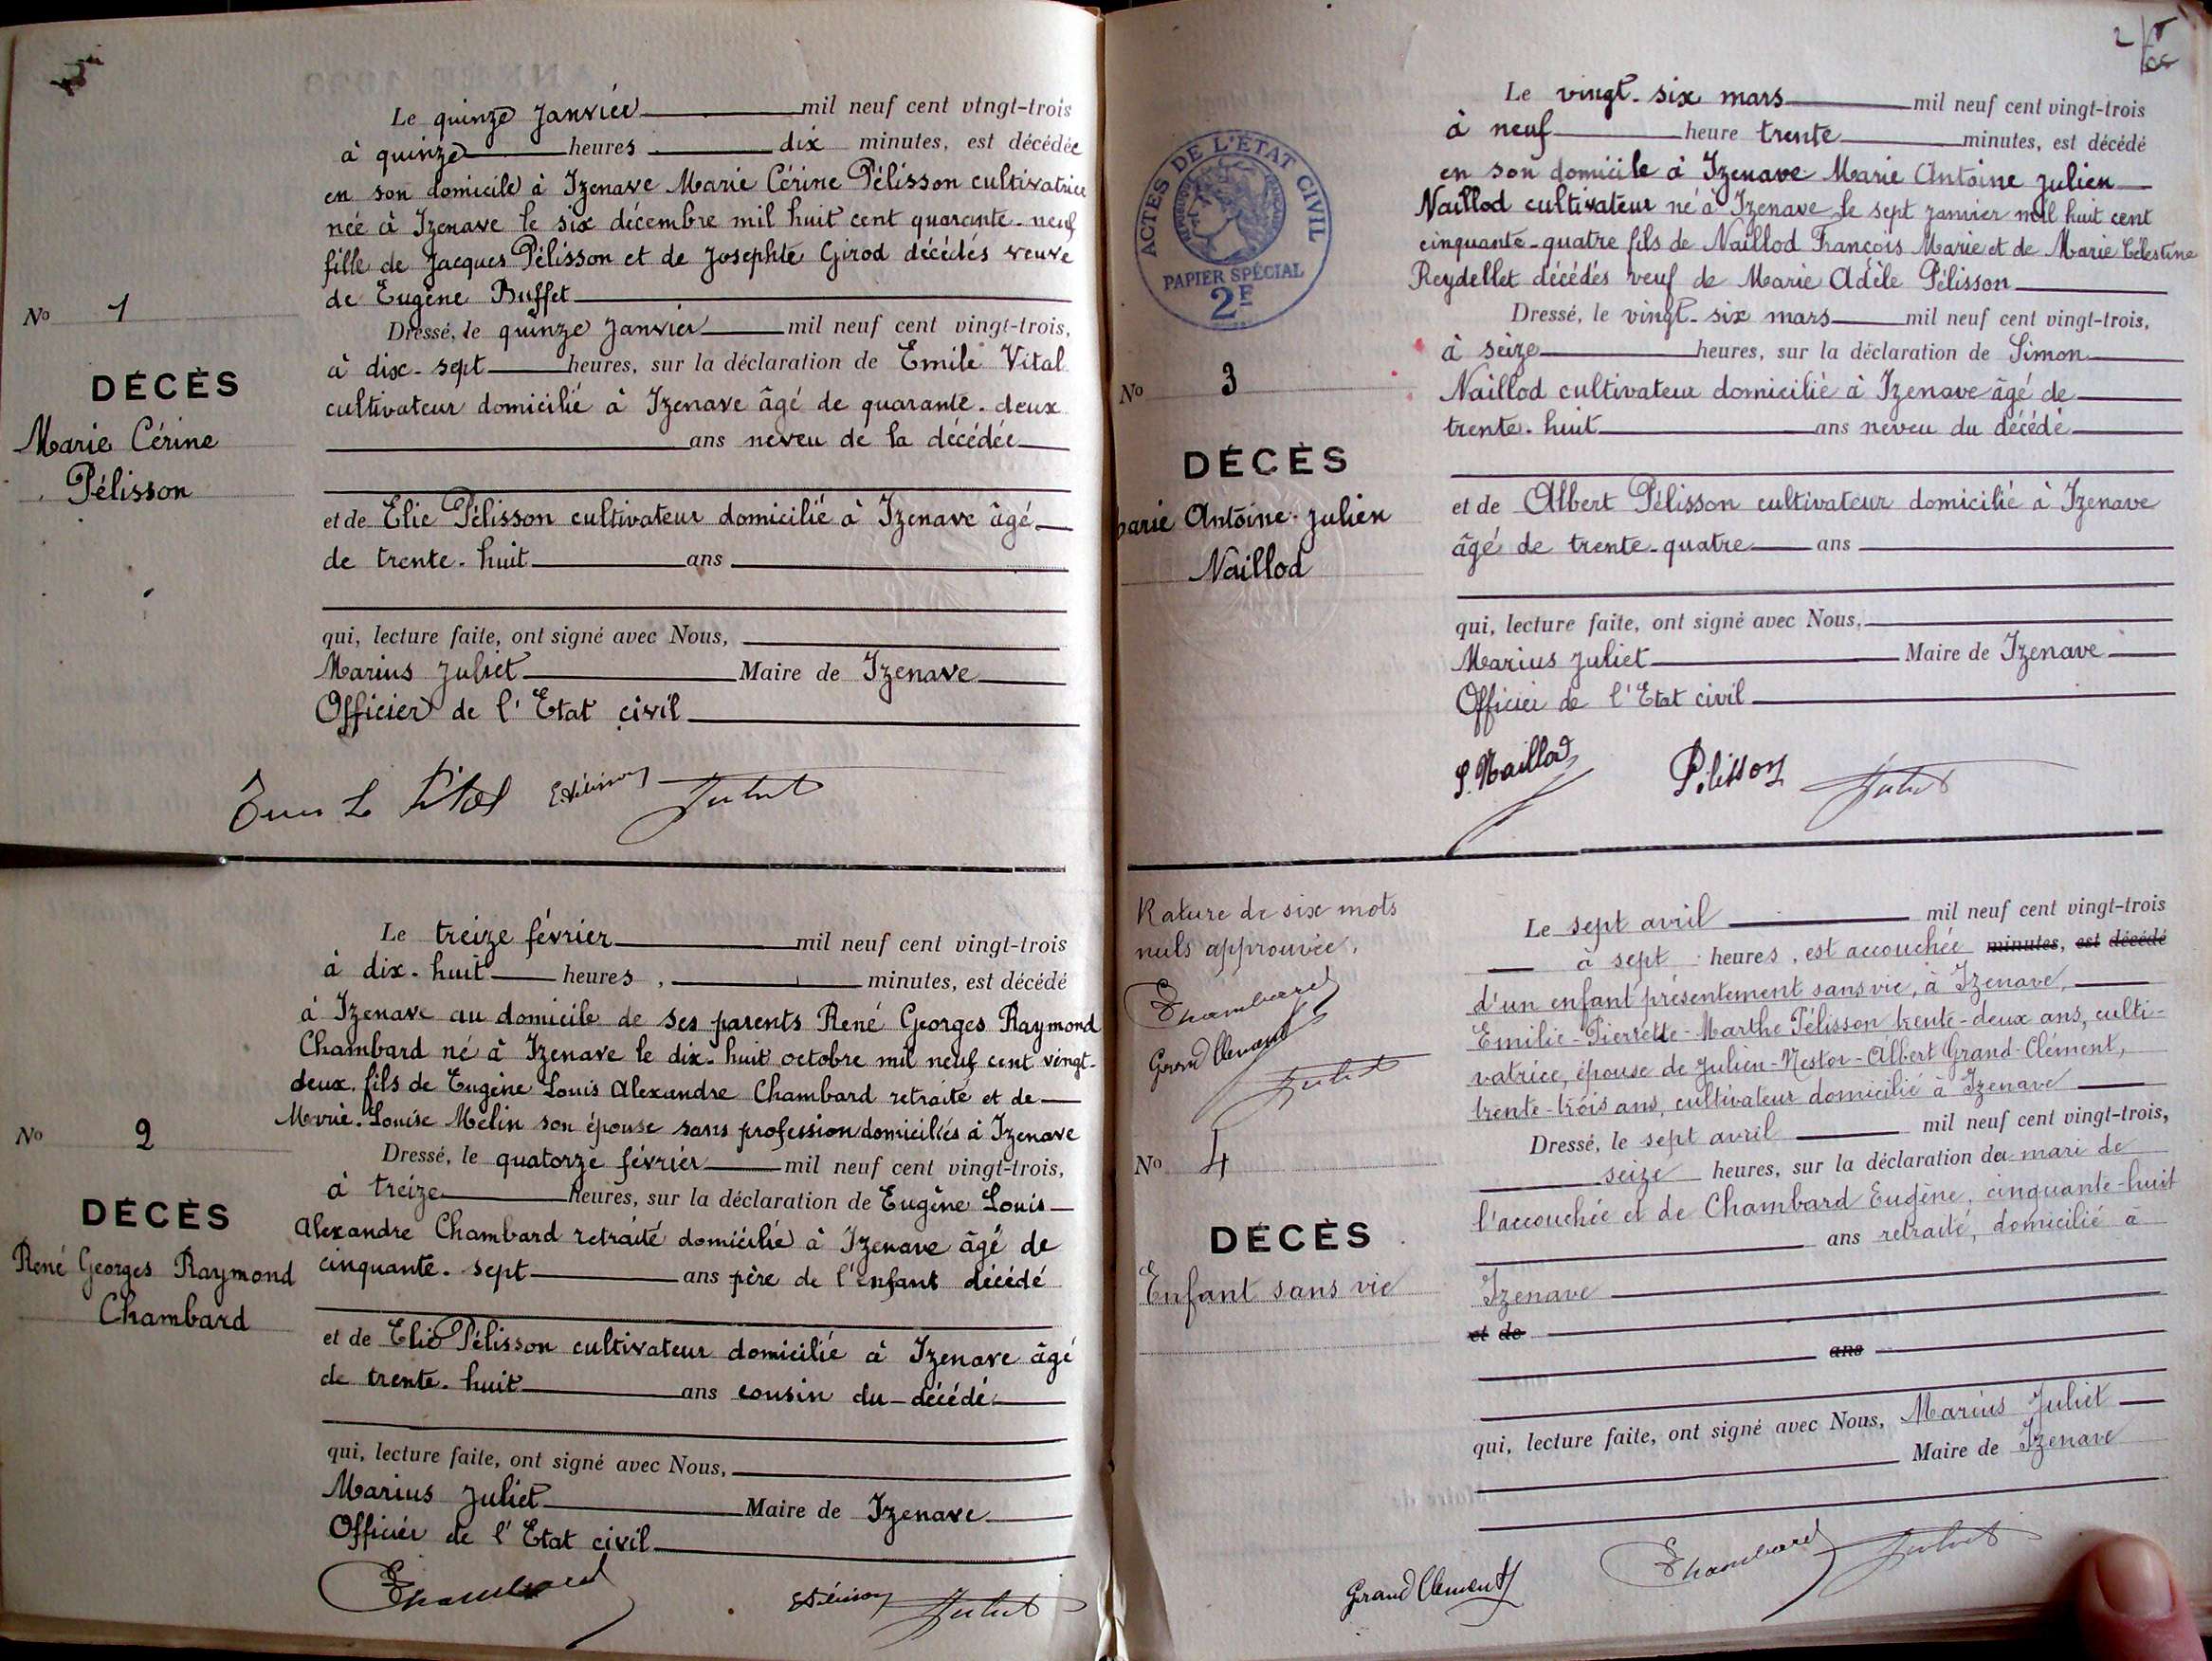 Le quinze Janvier mil neuf cent vingt-trois
à quinze heures dix minutes, est décédée
en son domicile à Izenave Marie Cérine Pélisson cultivatrice
née à Izenave le six décembre mil huit cent quarante-neuf
fille de Jacques Pélisson et de Josephte Girod décédés veuve
de Eugène Buffet
No 1
Dressé, le quinze Janvier mil neuf cent vingt-trois,
à dix-sept heures, sur la déclaration de Emile Vital
DÉCÈS
cultivateur domicilié à Izenave âgé de quarante-deux
Marie Cérine
ans neveu de la décédée
Pélisson
et de Elie Pélisson cultivateur domicilié à Izenave âgé
de trente-huit ans
qui, lecture faite, ont signé avec Nous,
Marius Juliet Maire de Izenave
Officier de l'Etat civil
Vital Juliet
Le treize février mil neuf cent vingt-trois
à dix-huit heures, minutes, est décédé
à Izenave au domicile de ses parents René Georges Raymond
Chambard né à Izenave le dix-huit octobre mil neuf cent vingt-
deux fils de Eugène Louis Alexandre Chambard retraité et de
Marie-Louise Mélin son épouse sans profession domiciliés à Izenave
No 2
Dressé, le quatorze février mil neuf cent vingt-trois,
à treize heures, sur la déclaration de Eugène Louis
DÉCÈS
Alexandre Chambard retraité domicilié à Izenave âgé de
René Georges Raymond
cinquante-sept ans père de l'enfant décédé
Chambard
et de Elie Pélisson cultivateur domicilié à Izenave âgé
de trente-huit ans cousin du décédé
qui, lecture faite, ont signé avec Nous,
Marius Juliet Maire de Izenave
Officier de l'Etat civil
Chambard EPélisson Juliet
2
Le vingt-six mars mil neuf cent vingt-trois
à neuf heure trente minutes, est décédé
ACTES DE L'ÉTAT CIVIL
PAPIER SPÉCIAL
2F
en son domicile à Izenave Marie Antoine Julien
Naillod cultivateur né à Izenave le sept janvier mil huit cent
cinquante-quatre fils de Naillod François Marie et de Marie Célestine
Reydellet décédés veuf de Marie Adèle Pélisson
Dressé, le vingt-six mars mil neuf cent vingt-trois,
à seize heures, sur la déclaration de Simon
No 3
Naillod cultivateur domicilié à Izenave âgé de
trente-huit ans neveu du décédé
DÉCÈS
Marie Antoine-Julien
Naillod
et de Albert Pélisson cultivateur domicilié à Izenave
âgé de trente-quatre ans
qui, lecture faite, ont signé avec Nous,
Marius Juliet Maire de Izenave
Officier de l'Etat civil
S. Naillod Pélisson Juliet
Rature de six mots
nuls approuvée,
Chambard
Grand Clement
Juliet
Le sept avril mil neuf cent vingt-trois
à sept heures, est accouchée minutes, est décédé
d'un enfant présentement sans vie, à Izenave,
Emilie-Pierrette-Marthe Pélisson trente-deux ans, culti-
vatrice, épouse de Julien-Nestor-Albert Grand-Clément,
trente-trois ans, cultivateur domicilié à Izenave
No 4
Dressé, le sept avril mil neuf cent vingt-trois,
seize heures, sur la déclaration du mari de
DÉCÈS
l'accouchée et de Chambard Eugène, cinquante-huit
Enfant sans vie
ans retraité, domicilié à
Izenave
et de
ans
qui, lecture faite, ont signé avec Nous, Marius Juliet
Maire de Izenave
Grand Clement Chambard Juliet